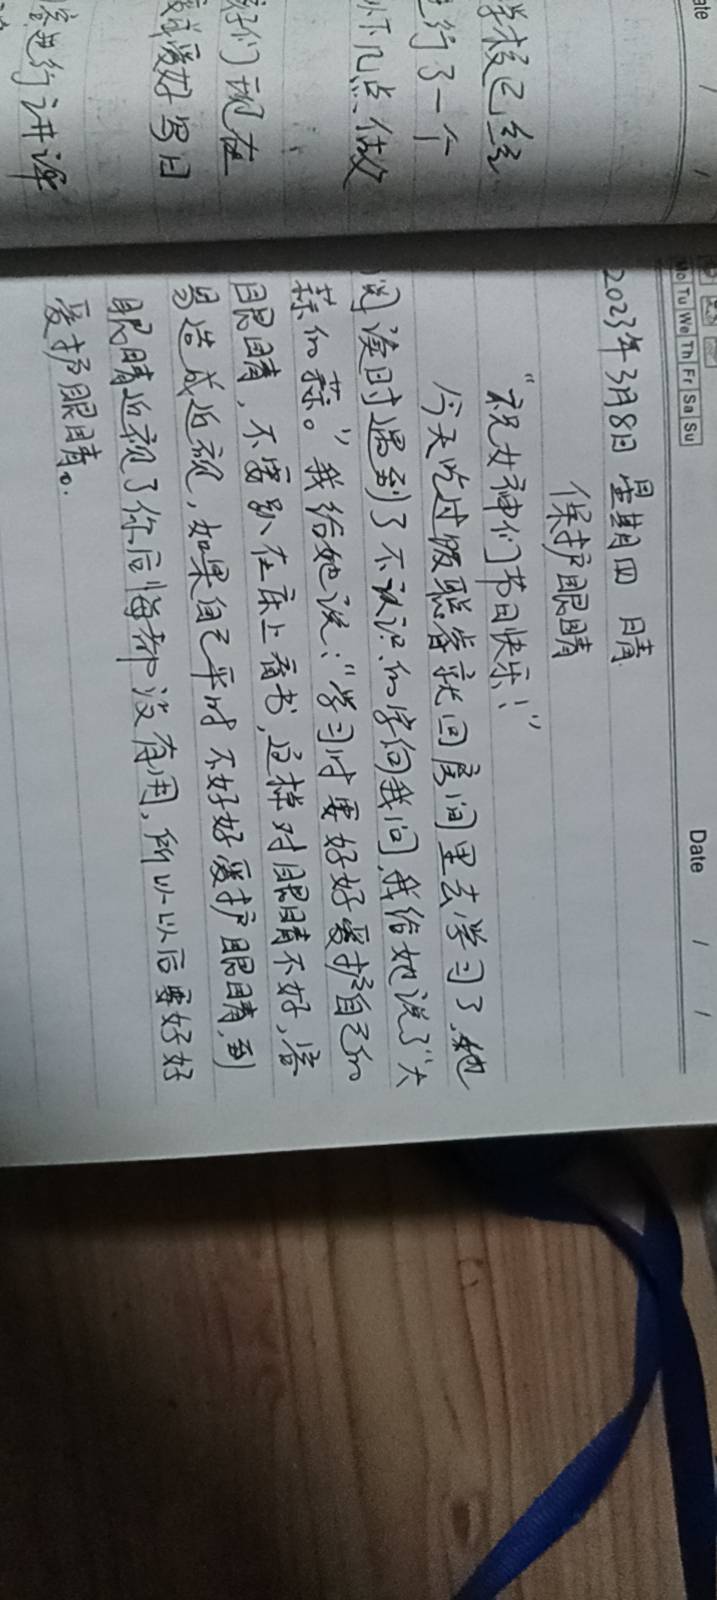 学校已经
行了一个
下几点做
好们现在
爱好写日
进行讲评
Mo Tu We Th Fr Sa Su
Date / /
2023年3月8日 星期四 晴
保护眼睛
“祝女神们节日快乐！”
今天吃过饭聪睿就回房间里去学习了，她
阅读时遇到了不认识的字向我问，我给她说了“大
蒜的蒜。”我给她说：“学习时要好好爱护自己的
眼睛，不要趴在床上看书，这样对眼睛不好，容
易造成近视，如果自己平时不好好爱护眼睛，到
眼睛近视了你后悔都没有用，所以以后要好好
爱护眼睛。